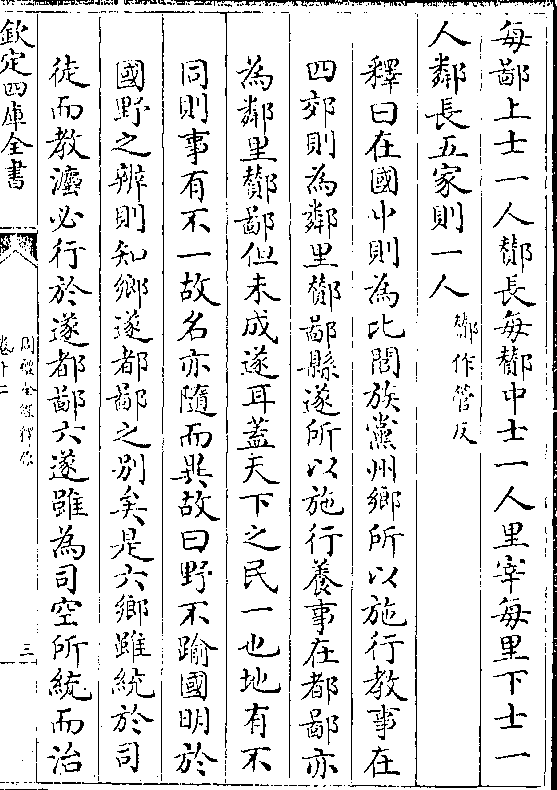 每鄙上士一人酇長每酇中士一人里宰每里下士一
人鄰長五家則一人酇作管反
釋曰在國中則為比閭族黨州鄉所以施行教事在
四郊則為鄰里酇鄙縣遂所以施行養事在都鄙亦
為鄰里酇鄙但未成遂耳蓋天下之民一也地有不
同則事有不一故名亦隨而異故曰野不踰國明於
國野之辨則知鄉遂都鄙之別矣是六鄉雖統於司
徒而教灋必行於遂都鄙六遂雖為司空所統而治
欽定四庫全書
周禮全經釋原
卷十二
三